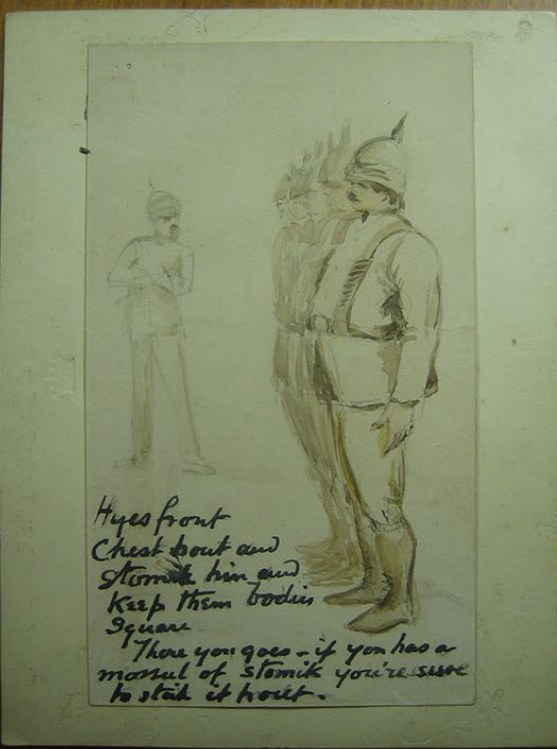 Hyes front
Chest hout and
Stomik hin and
Keep them bodies
Square
There you goes - if you has a
morsul of stomik you're sure
to stick it hout.